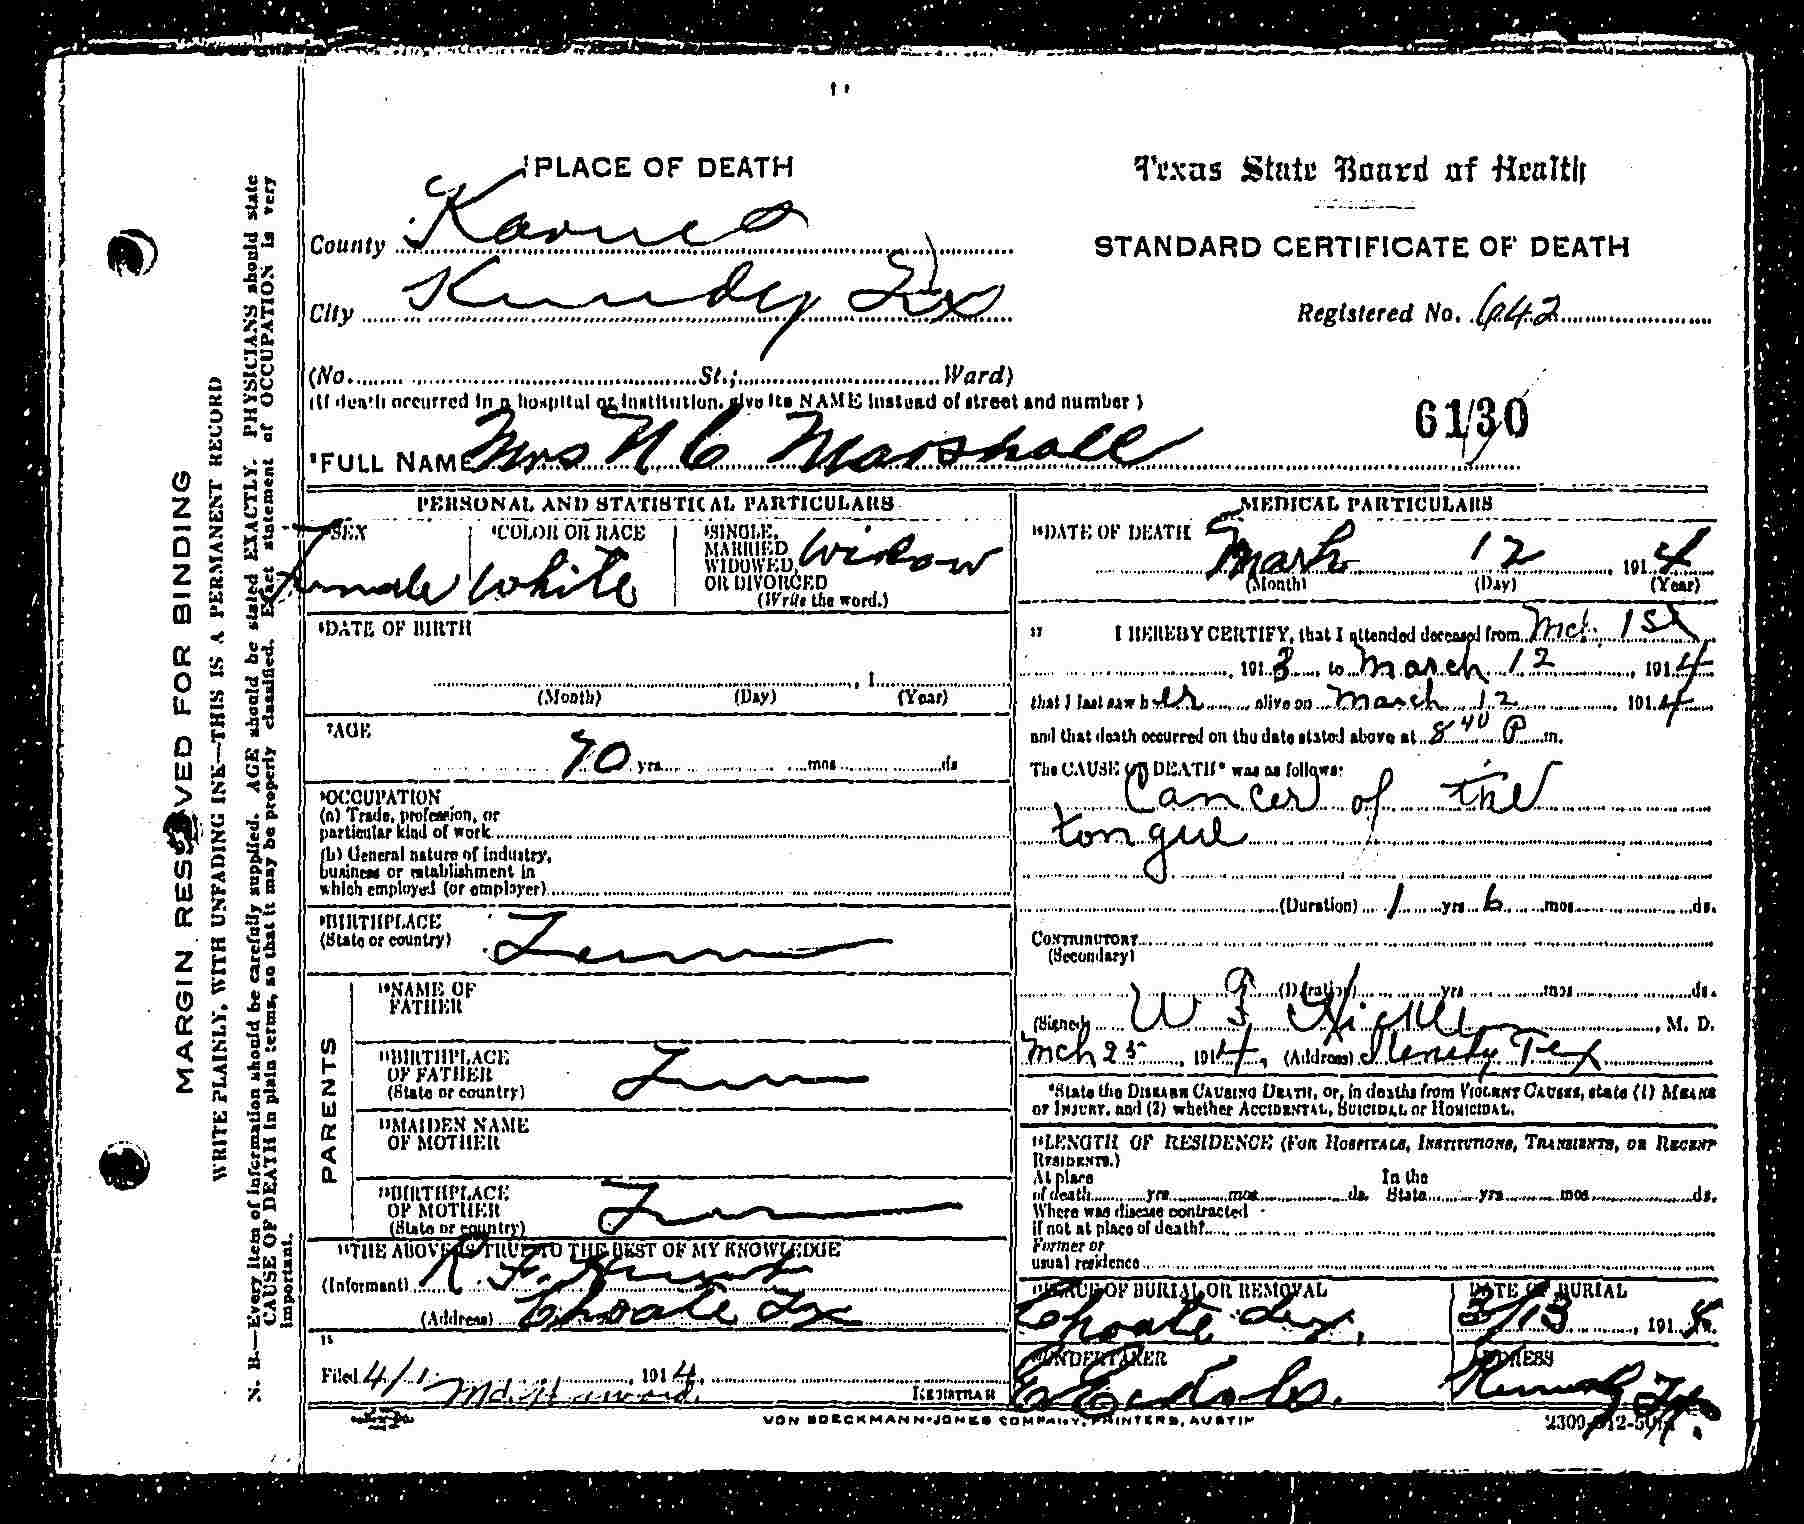 PLACE OF DEATH
County Karnes
City Kenedy Tx
(No. St.; Ward)
(If death occurred in a hospital or institution, give its NAME instead of street and number)
FULL NAME Mrs N C Marshall
Texas State Board of Health
STANDARD CERTIFICATE OF DEATH
Registered No. 642
6130
MARGIN RESERVED FOR BINDING
WRITE PLAINLY, WITH UNFADING INK—THIS IS A PERMANENT RECORD
N. B.—Every item of information should be carefully supplied. AGE should be stated EXACTLY. PHYSICIANS should state
CAUSE OF DEATH in plain terms, so that it may be properly classified. Exact statement of OCCUPATION is very
important.
PERSONAL AND STATISTICAL PARTICULARS
SEX Female
COLOR OR RACE White
SINGLE,
MARRIED
WIDOWED,
OR DIVORCED
(Write the word.) Widow
DATE OF BIRTH
, 1
(Month) (Day) (Year)
AGE
70 yrs. mos. ds
OCCUPATION
(a) Trade, profession, or
particular kind of work
(b) General nature of industry,
business or establishment in
which employed (or employer)
BIRTHPLACE
(State or country) Tenn
PARENTS
NAME OF
FATHER
BIRTHPLACE
OF FATHER
(State or country) Tenn
MAIDEN NAME
OF MOTHER
BIRTHPLACE
OF MOTHER
(State or country) Tenn
THE ABOVE IS TRUE TO THE BEST OF MY KNOWLEDGE
(Informant) R. F.
(Address) Choate Tx
15
Filed 4/1, 1914,
REGISTRAR
MEDICAL PARTICULARS
DATE OF DEATH
Marh 12, 1914
(Month) (Day) (Year)
17 I HEREBY CERTIFY, that I attended deceased from Mch. 1st
, 1913, to March 12, 1914
that I last saw her alive on March 12, 1914
and that death occurred on the date stated above at 8 40 P m.
The CAUSE OF DEATH* was as follows:
Cancer of the
tongue
(Duration) 1 yrs 6 mos ds.
CONTRIBUTORY
(Secondary)
(Duration) yrs mos ds.
(Signed) W F, M. D.
Mch 25, 1914, (Address) Kenedy Tex
*State the DISEASE CAUSING DEATH, or, in deaths from VIOLENT CAUSES, state (1) MEANS
OF INJURY, and (2) whether ACCIDENTAL, SUICIDAL or HOMICIDAL.
LENGTH OF RESIDENCE (FOR HOSPITALS, INSTITUTIONS, TRANSIENTS, OR RECENT
RESIDENTS.)
At place In the
of death yrs mos ds. State yrs mos ds.
Where was disease contracted
if not at place of death?
Former or
usual residence
PLACE OF BURIAL OR REMOVAL
Choate Tex.
DATE OF BURIAL
3/13, 1914.
UNDERTAKER
ADDRESS
Kenedy Tx.
VON BOECKMANN-JONES COMPANY, PRINTERS, AUSTIN